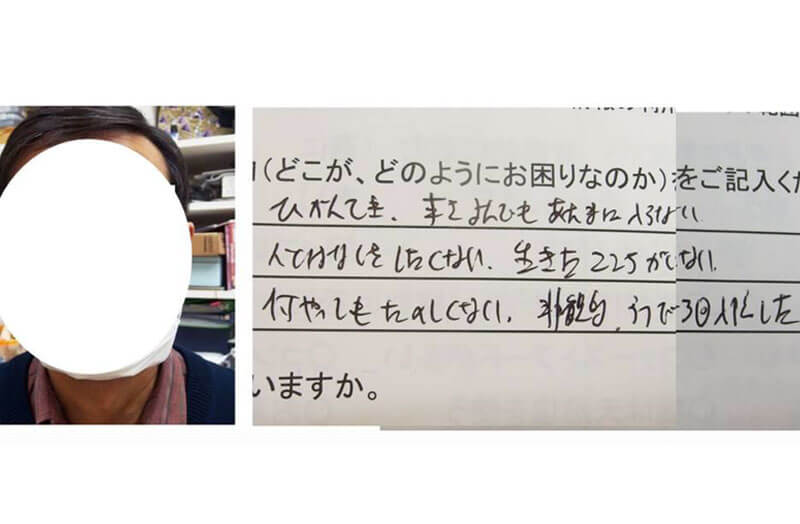 (どこが、どのようにお困りなのか)をご記入くだ
ひかんてき、本をよんでもあたまに入らない
人とはなしをしたくない、生きたここちがしない
何やってもたのしくない、うつで3回入院した
いますか。